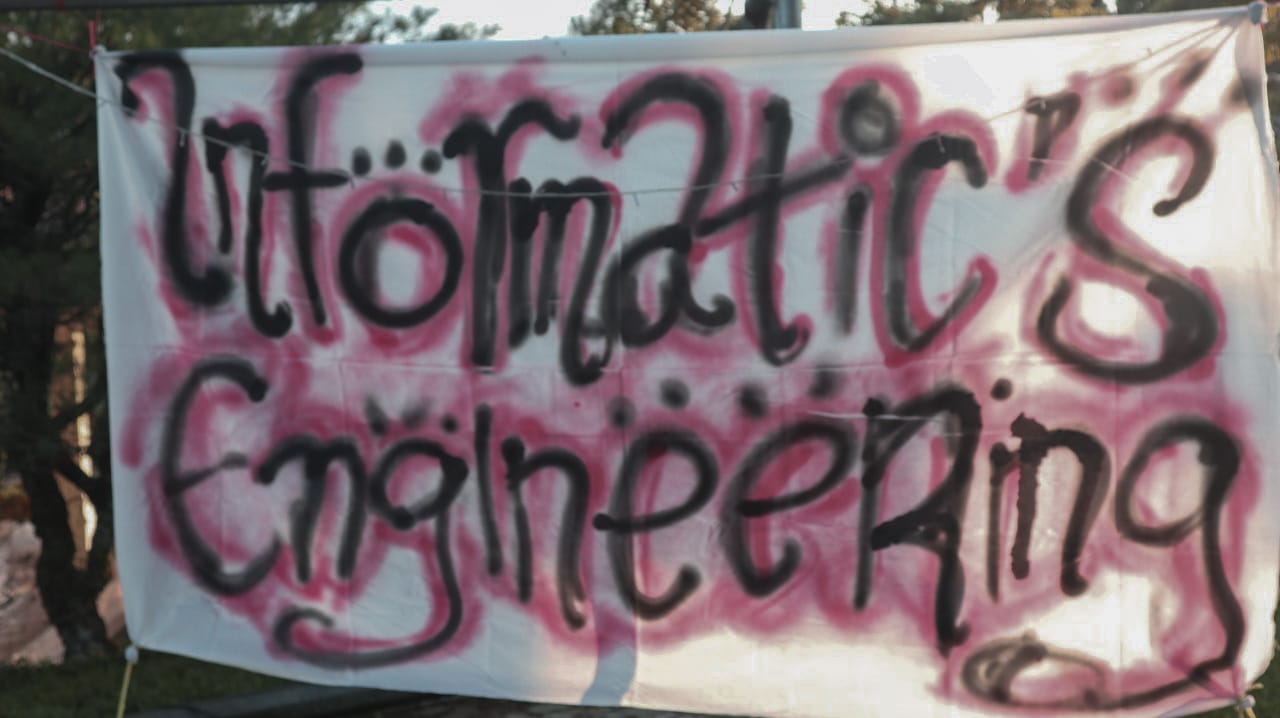 Informatic's
Engineering